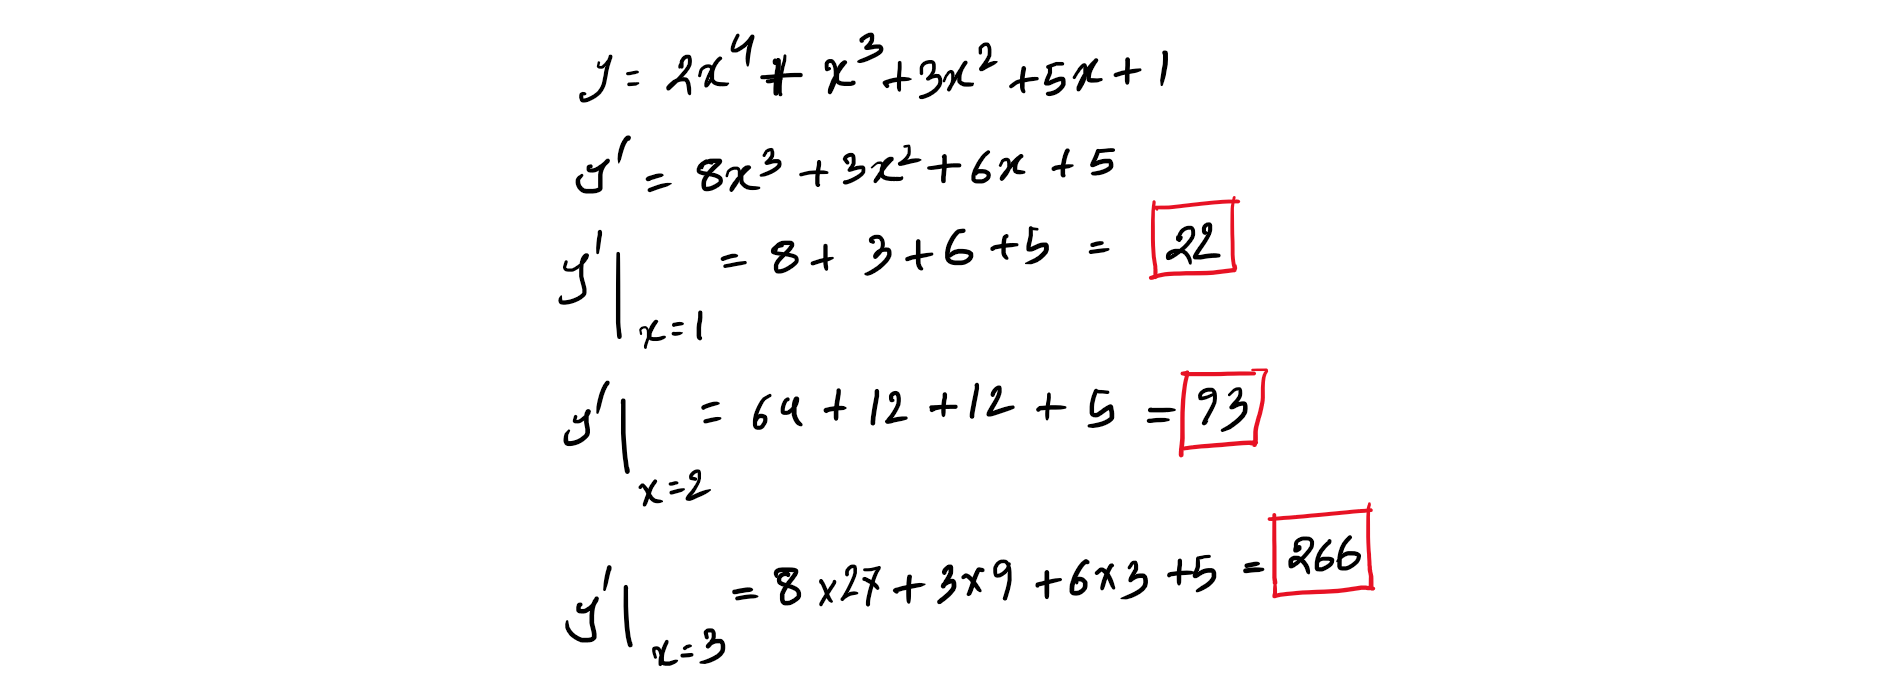 y = 2x⁴ + x³ + 3x² + 5x + 1
y' = 8x³ + 3x² + 6x + 5
y'|ₓ₌₁ = 8 + 3 + 6 + 5 = 22
y'|ₓ₌₂ = 64 + 12 + 12 + 5 = 93
y'|ₓ₌₃ = 8 × 27 + 3 × 9 + 6 × 3 + 5 = 266